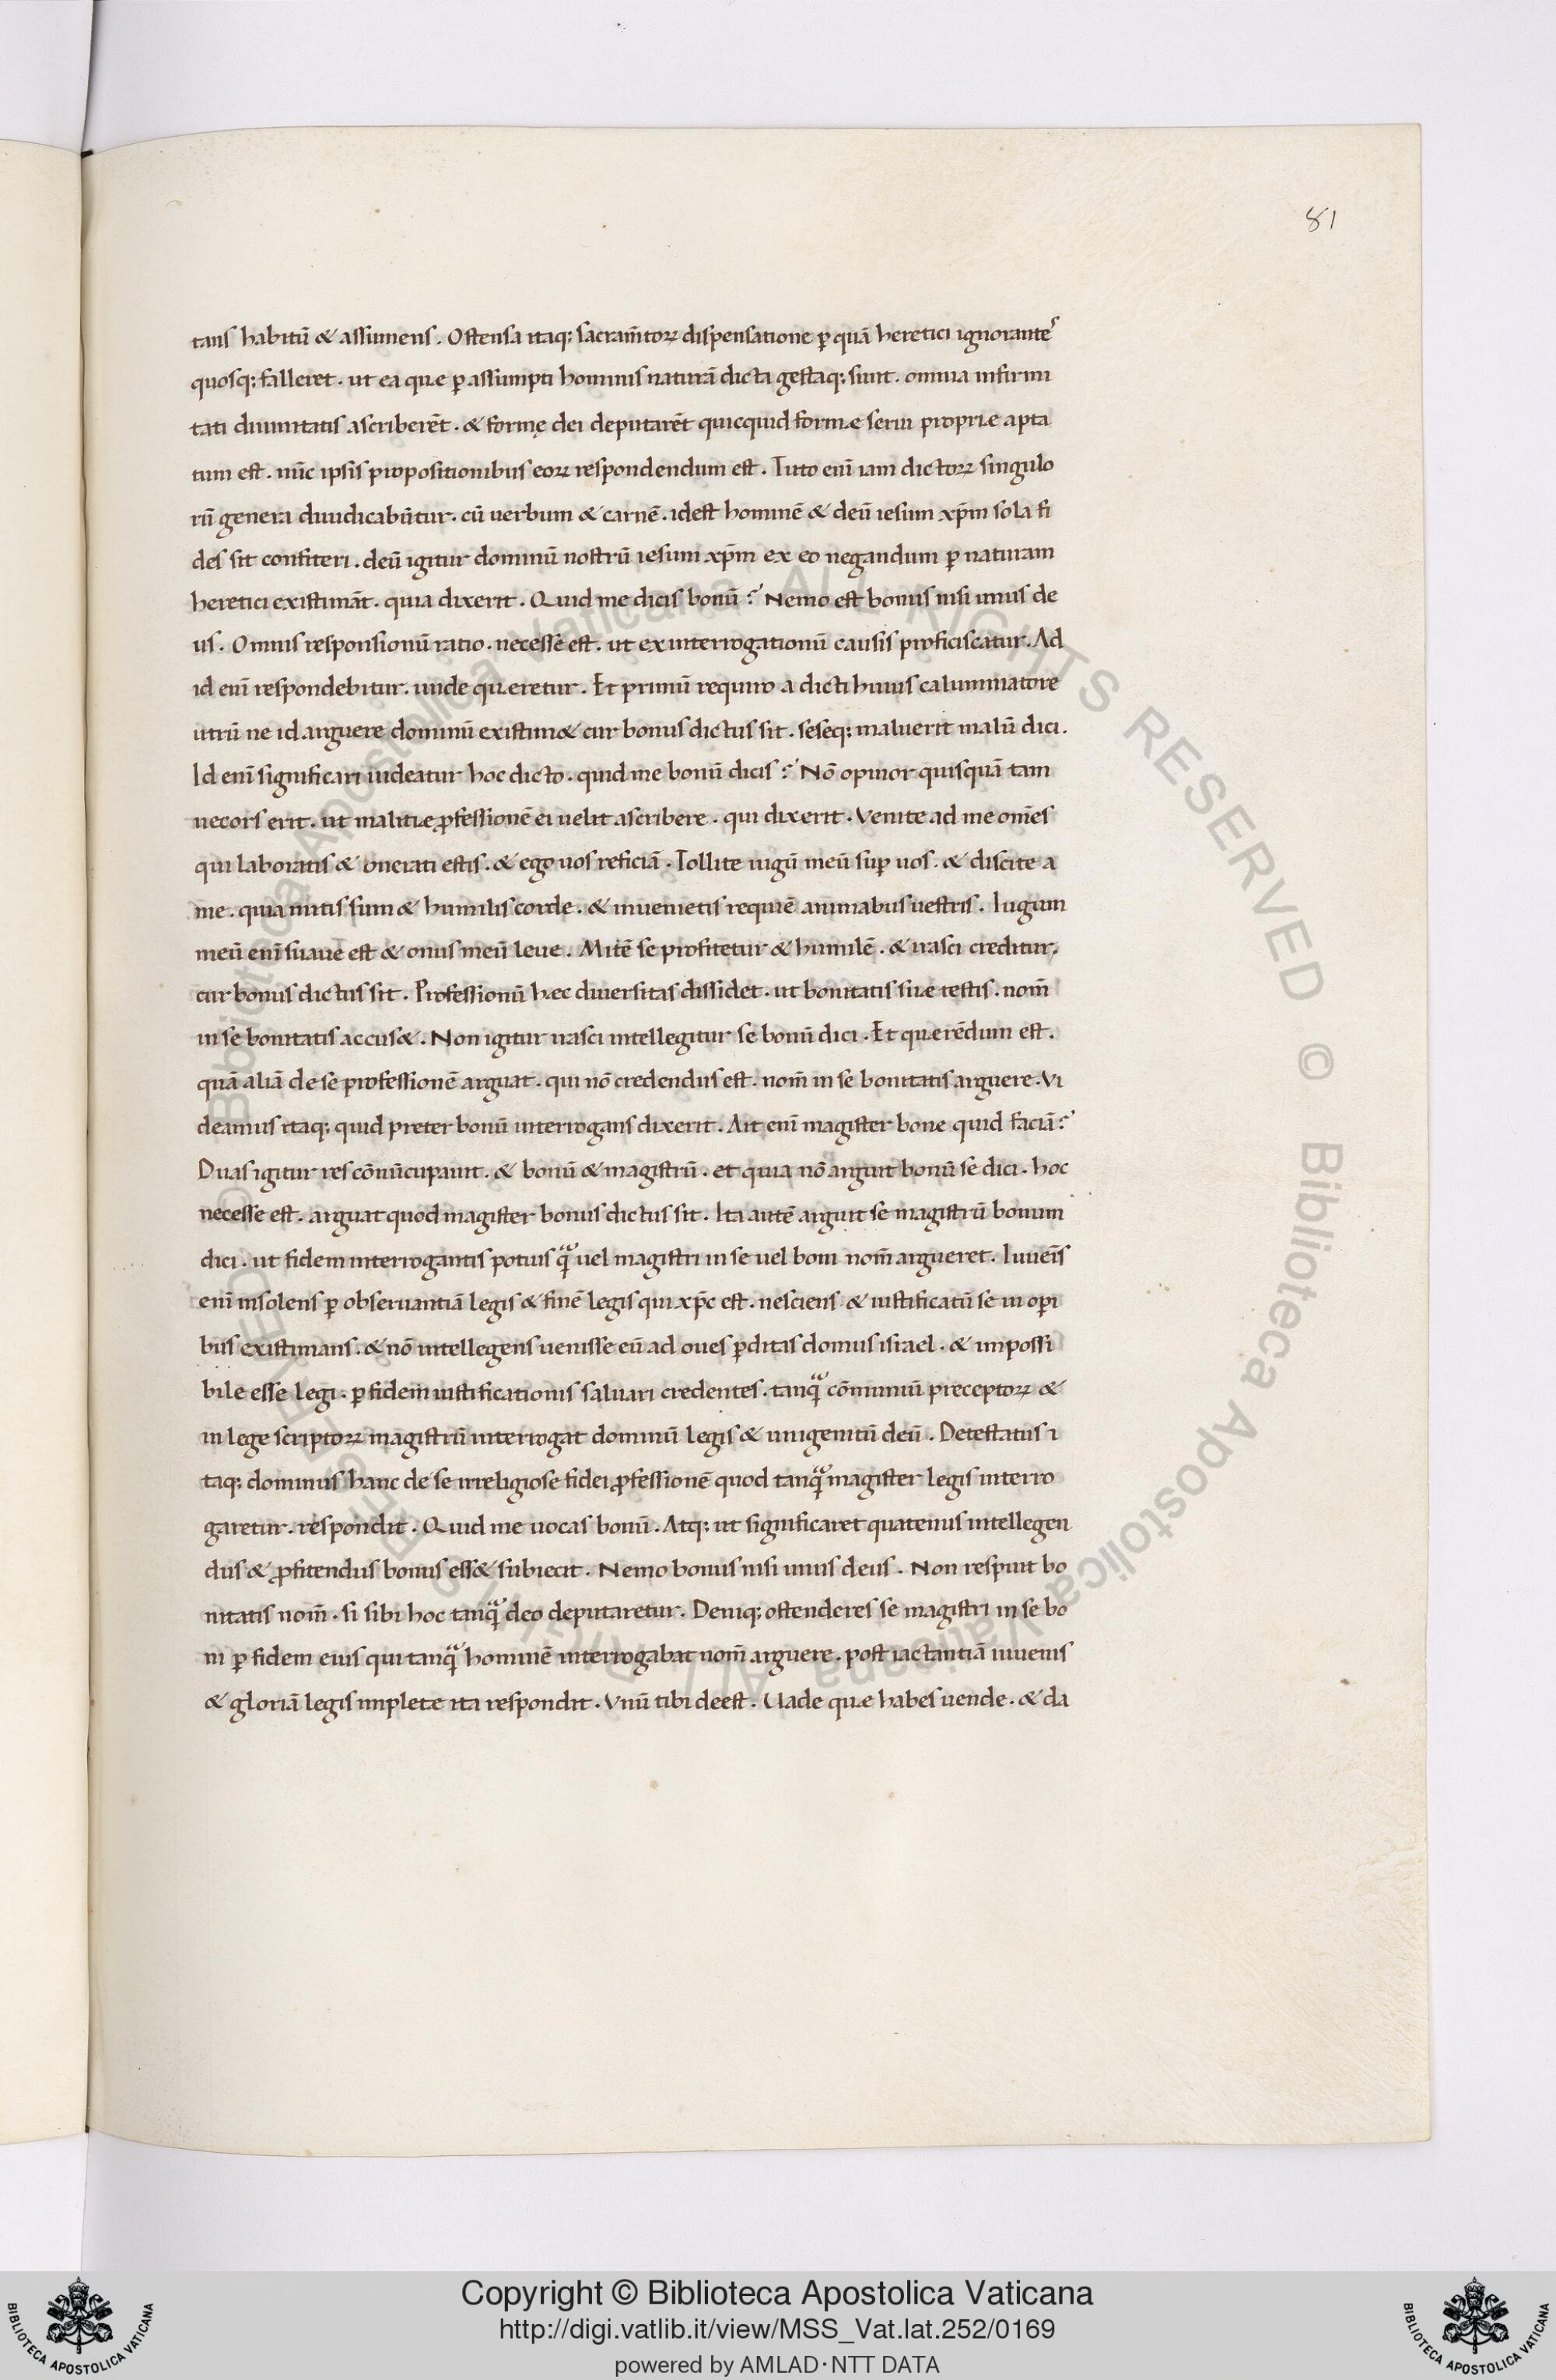 81
tans habitū & assumens. Ostensa itaq; sacram̄torꝝ dispensatione ꝑ quā heretici ignorantes
quosq; falleret. ut ea quę ꝑ assumpti hominis naturā dicta gestaq; sunt. omnia infirmi
tati diuinitatis ascriberēt. & formę dei deputarēt quicquid formę serui proprię apta
tum est. nūc ipsis propositionibus eorꝝ respondendum est. Tuto enī iam dictorꝝ singulo
rū genera diiudicabūtur. cū uerbum & carnē. idest hominē & deū iesum xp̄m sola fi
des sit confiteri. deū igitur dominū nostrū iesum xp̄m ex eo negandum ꝑ naturam
heretici existimāt. quia dixerit. Quid me dicis bonū? Nemo est bonus nisi unus de
us. Omnis responsionū ratio. necesse est. ut ex interrogationū causis proficiscatur. Ad
id enī respondebitur. unde quęretur. Et primū requiro a dicti huius calumniatore
utrū ne id arguere dominū existim& cur bonus dictus sit. seseq; maluerit malū dici.
Id enī significari uideatur hoc dicto. quid me bonū dicis? Nō opinor quisquā tam
uecors erit. ut malitię ꝓfessionē ei uelit ascribere. qui dixerit. Venite ad me om̄es
qui laboratis & onerati estis. & ego uos reficiā. Tollite iugū meū suꝑ uos. & discite a
me. quia mitis sum & humilis corde. & inuenietis requiē animabus uestris. Iugum
meū enī suaue est & onus meū leue. Mitē se profitetur & humilē. & irasci creditur.
cur bonus dictus sit. Professionū hęc diuersitas dissidet. ut bonitatis suę testis. nom̄
in se bonitatis accus&. Non igitur irasci intellegitur se bonū dici. Et quęrēdum est.
quā aliā de se professionē arguat. qui nō credendus est. nom̄ in se bonitatis arguere. Vi
deamus itaq; quid preter bonū interrogans dixerit. Ait enī magister bone quid faciā?
Duas igitur res cōnūcupauit. & bonū & magistrū. et quia nō arguit bonū se dici. hoc
necesse est. arguat quod magister bonus dictus sit. Ita autē arguit se magistrū bonum
dici. ut fidem interrogantis potius qᷓ uel magistri in se uel boni nom̄ argueret. Iuueīs
enī insolens ꝑ obseruantiā legis & finē legis qui xp̄c est. nesciens & iustificatū se in oꝑi
bus existimans. & nō intellegens uenisse eū ad oues ꝑditas domus israel. & impossi
bile esse legi. ꝑ fidem iustificationis saluari credentes. tanqᷓ cōmuniū preceptorꝝ &
in lege scriptorꝝ magistrū interrogat dominū legis & unigenitū deū. Detestatus i
taq; dominus hanc de se irreligiose fidei ꝓfessionē quod tanqᷓ magister legis interro
garetur. respondit. Quid me uocas bonū. Atq; ut significaret quatenus intellegen
dus & ꝓfitendus bonus ess& subiecit. Nemo bonus nisi unus deus. Non respuit bo
nitatis nom̄. si sibi hoc tanqᷓ deo deputaretur. Deniq; ostenderes se magistri in se bo
ni ꝑ fidem eius qui tanqᷓ hominē interrogabat nom̄ arguere. post iactantiā iuuenis
& gloriā legis impletę ita respondit. Vnū tibi deest. Uade quę habes uende. & da
© Biblioteca Apostolica Vaticana ALL RIGHTS RESERVED
Copyright © Biblioteca Apostolica Vaticana
http://digi.vatlib.it/view/MSS_Vat.lat.252/0169
powered by AMLAD·NTT DATA
BIBLIOTECA APOSTOLICA VATICANA
BIBLIOTECA APOSTOLICA VATICANA